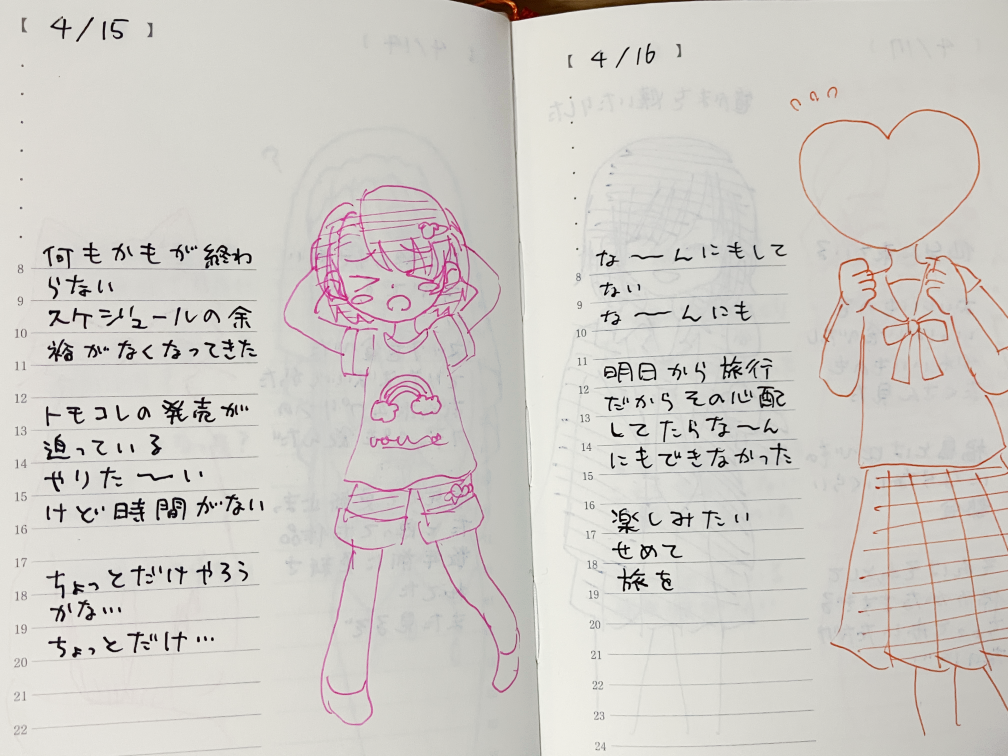 【 4/15 】
8
9
10
11
12
13
14
15
16
17
18
19
20
21
22
何もかもが終わ
らない
スケジュールの余
裕がなくなってきた
トモコレの発売が
迫っている
やりた〜い
けど時間がない
ちょっとだけやろう
かな…
ちょっとだけ…
【 4/16 】
8
9
10
11
12
13
14
15
16
17
18
19
20
21
22
23
24
な〜んにもして
ない
な〜んにも
明日から旅行
だからその心配
してたらな〜ん
にもできなかった
楽しみたい
せめて
旅を